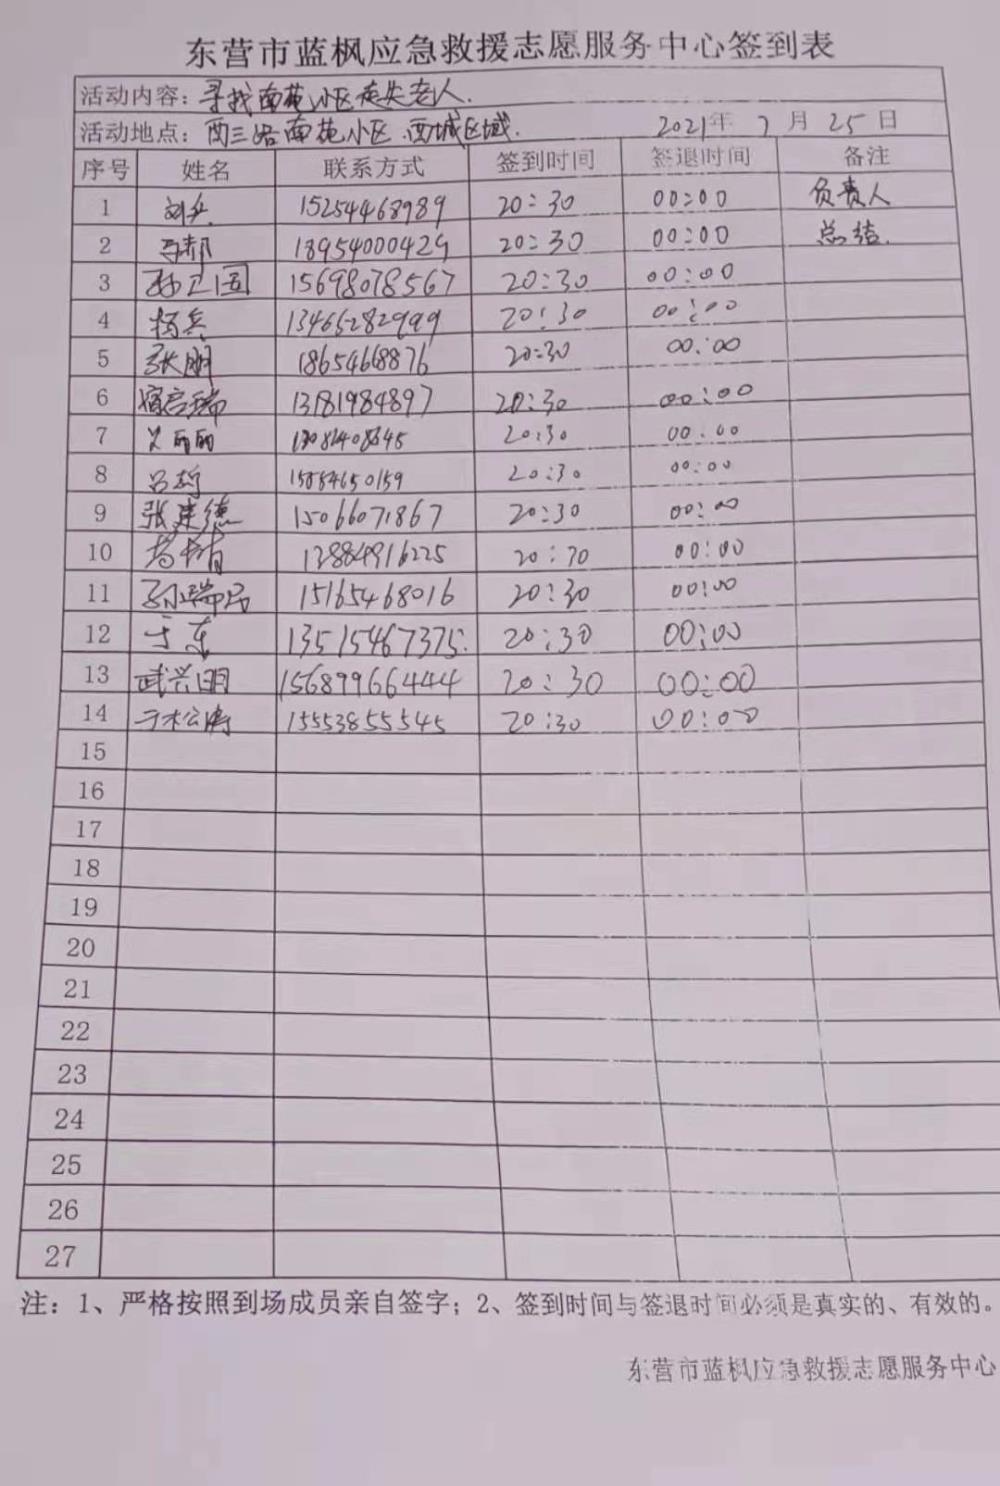 东营市蓝枫应急救援志愿服务中心签到表
活动内容：寻找南苑小区走失老人.
活动地点：西三路南苑小区.西城区域. 2021年 7 月 25 日
序号 姓名 联系方式 签到时间 签退时间 备注
1 刘兵 15254468989 20:30 00:00 负责人
2 18954000429 20:30 00:00 总结.
3 孙卫国 15698078567 20:30 00:00
4 杨兵 13465282999 20:30 00:00
5 张朋 1865468876 20:30 00:00
6 13181984897 20:30 00:00
7 丽丽 20:30 00:00
8 吕 15054650159 20:30 00:00
9 张建德 15066071867 20:30 00:00
10 20:30 00:00
11 孙瑞民 15165468016 20:30 00:00
12 于东 13515467375. 20:30 00:00
13 武兴明 15689966444 20:30 00:00
14 15553855545 20:30 00:00
15
16
17
18
19
20
21
22
23
24
25
26
27
注：1、严格按照到场成员亲自签字；2、签到时间与签退时间必须是真实的、有效的。
东营市蓝枫应急救援志愿服务中心